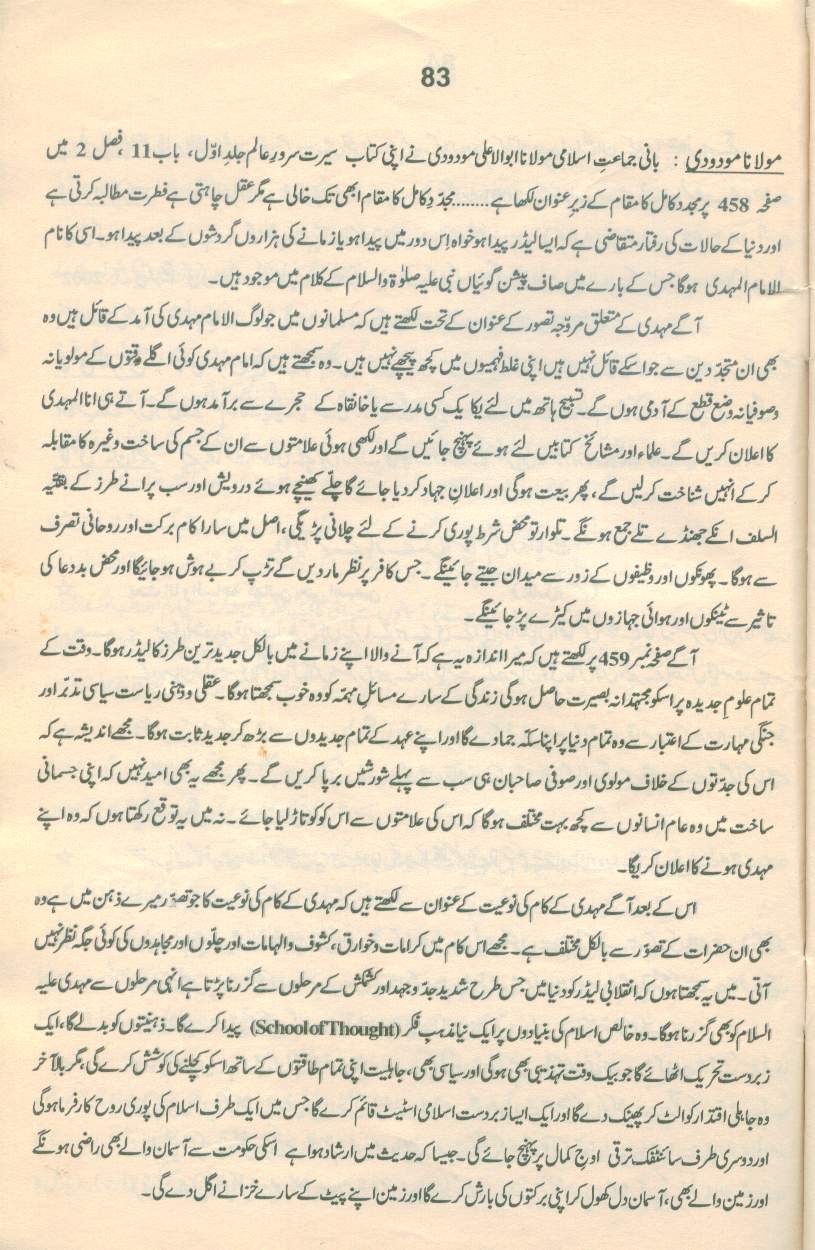 83
مولانا مودودی : بانی جماعتِ اسلامی مولانا ابوالاعلی مودودی نے اپنی کتاب سیرت سرورِ عالم جلدِ اوّل، باب 11 ،فصل 2 میں
صفحہ 458 پر مجدد کامل کا مقام کے زیرِ عنوان لکھا ہے........مجدّدِ کامل کا مقام ابھی تک خالی ہے مگر عقل چاہتی ہے فطرت مطالبہ کرتی ہے
اور دنیا کے حالات کی رفتار متقاضی ہے کہ ایسا لیڈر پیدا ہو خواہ اِس دور میں پیدا ہو یا زمانے کی ہزاروں گردشوں کے بعد پیدا ہو۔اسی کا نام
الامام المہدی ہوگا جس کے بارے میں صاف پیشن گوئیاں نبی علیہ صلوٰۃ والسلام کے کلام میں موجود ہیں۔
آگے مہدی کے متعلق مروّجہ تصور کے عنوان کے تحت لکھتے ہیں کہ مسلمانوں میں جو لوگ الامام مہدی کی آمد کے قائل ہیں وہ
بھی ان متجدّدین سے جو اسکے قائل نہیں ہیں اپنی غلط فہمیوں میں کچھ پیچھے نہیں ہیں۔وہ سمجھتے ہیں کہ امام مہدی کوئی اگلے وقتوں کے مولویانہ
وصوفیانہ وضع قطع کے آدمی ہوں گے۔تسبیح ہاتھ میں لئے یکا یک کسی مدرسے یا خانقاہ کے حجرے سے برآمد ہوں گے۔آتے ہی انا المہدی
کا اعلان کریں گے۔علماء اور مشائخ کتابیں لئے ہوئے پہنچ جائیں گے اور لکھی ہوئی علامتوں سے ان کے جسم کی ساخت وغیرہ کا مقابلہ
کر کے انہیں شناخت کر لیں گے، پھر بیعت ہوگی اور اعلانِ جہاد کر دیا جائے گا چلّے کھینچے ہوئے درویش اور سب پرانے طرز کے بقیّۃ
السلف انکے جھنڈے تلے جمع ہونگے۔تلوار تو محض شرط پوری کرنے کے لئے چلانی پڑیگی، اصل میں سارا کام برکت اور روحانی تصرف
سے ہوگا۔پھونکوں اور وظیفوں کے زور سے میدان جیتے جائینگے۔جس کافر پر نظر مار دیں گے تڑپ کر بے ہوش ہو جائیگا اور محض بددعا کی
تاثیر سے ٹینکوں اور ہوائی جہازوں میں کیڑے پڑ جائینگے۔
آگے صفحہ نمبر 459 پر لکھتے ہیں کہ میرا اندازہ یہ ہے کہ آنے والا اپنے زمانے میں بالکل جدید ترین طرز کا لیڈر ہوگا۔وقت کے
تمام علومِ جدیدہ پر اسکو مجتہدانہ بصیرت حاصل ہوگی زندگی کے سارے مسائلِ مہمّہ کو وہ خوب سمجھتا ہوگا۔عقلی و ذہنی ریاست سیاسی تدبّر اور
جنگی مہارت کے اعتبار سے وہ تمام دنیا پر اپنا سکّہ جما دے گا اور اپنے عہد کے تمام جدیدوں سے بڑھ کر جدید ثابت ہوگا۔مجھے اندیشہ ہے کہ
اس کی جدّتوں کے خلاف مولوی اور صوفی صاحبان ہی سب سے پہلے شورشیں برپا کریں گے۔پھر مجھے یہ بھی امید نہیں کہ اپنی جسمانی
ساخت میں وہ عام انسانوں سے کچھ بہت مختلف ہوگا کہ اس کی علامتوں سے اس کو کو تاڑ لیا جائے۔نہ میں یہ توقع رکھتا ہوں کہ وہ اپنے
مہدی ہونے کا اعلان کریگا۔
اس کے بعد آگے مہدی کے کام کی نوعیت کے عنوان سے لکھتے ہیں کہ مہدی کے کام کی نوعیت کا جو تصوّر میرے ذہن میں ہے وہ
بھی ان حضرات کے تصوّر سے بالکل مختلف ہے۔مجھے اس کام میں کرامات و خوارق، کشوف والہامات اور چلّوں اور مجاہدوں کی کوئی جگہ نظر نہیں
آتی۔میں یہ سمجھتا ہوں کہ انقلابی لیڈر کو دنیا میں جس طرح شدید جدّوجہد اور کشمکش کے مرحلوں سے گزرنا پڑتا ہے انہی مرحلوں سے مہدی علیہ
السلام کو بھی گزرنا ہوگا۔وہ خالص اسلام کی بنیادوں پر ایک نیا مذہبِ فکر (School of Thought) پیدا کرے گا۔ذہنیتوں کو بدلے گا، ایک
زبردست تحریک اٹھائے گا جو بیک وقت تہذیبی بھی ہوگی اور سیاسی بھی، جاہلیت اپنی تمام طاقتوں کے ساتھ اسکو کچلنے کی کوشش کرے گی، مگر بالآخر
وہ جاہلی اقتدار کو الٹ کر پھینک دے گا اور ایک ایسا زبردست اسلامی اسٹیٹ قائم کرے گا جس میں ایک طرف اسلام کی پوری روح کارفرما ہوگی
اور دوسری طرف سائنٹفک ترقی اوجِ کمال پر پہنچ جائے گی۔جیسا کہ حدیث میں ارشاد ہوا ہے اسکی حکومت سے آسمان والے بھی راضی ہونگے
اور زمین والے بھی، آسمان دل کھول کر اپنی برکتوں کی بارش کرے گا اور زمین اپنے پیٹ کے سارے خزانے اگل دے گی۔